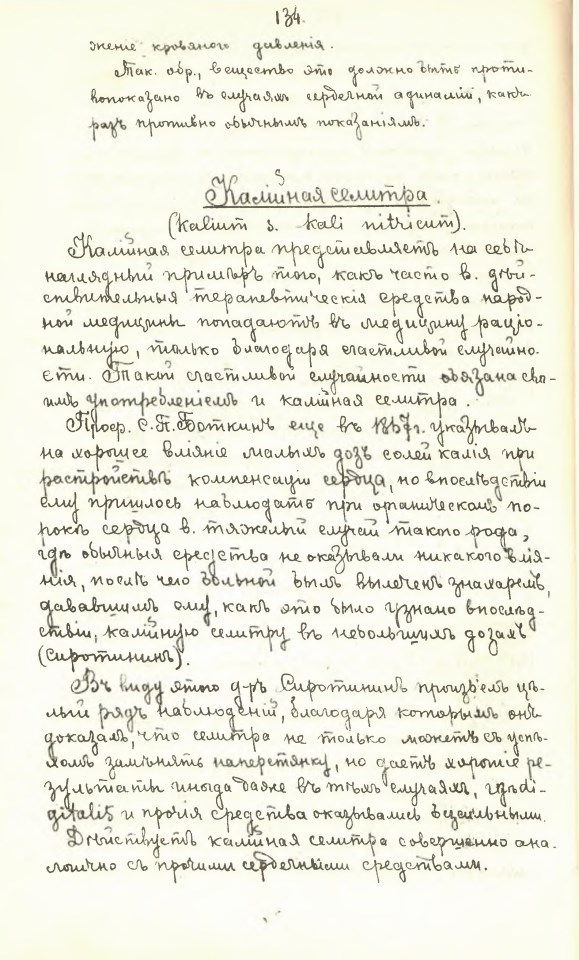 134.
женіе кровяного давленія.
Так. обр., вещество это должно быть проти-
вопоказано въ случаяхъ сердечной адинаміи, какъ
разъ противно обычнымъ показаніямъ.
Калійная селитра.
(Kalium s. kali nitricum).
Калійная селитра представляетъ на себѣ
наглядный примѣръ того, какъ часто в. дѣй-
ствительныя терапевтическія средства народ-
ной медицины попадаютъ въ медицину раціо-
нальную, только благодаря счастливой случайно-
сти. Такой счастливой случайности обязана сво-
имъ употребленіемъ и калійная селитра.
Проф. С. П. Боткинъ еще въ 1857 г. указывалъ
на хорошее вліяніе малыхъ дозъ солей калія при
растройствѣ компенсаціи сердца, но впослѣдствіи
ему пришлось наблюдать при органическомъ по-
рокѣ сердца в. тяжелый случай такого рода,
гдѣ обычныя средства не оказывали никакого влія-
нія, послѣ чего больной былъ вылеченъ знахаремъ,
дававшимъ ему, какъ это было узнано впослѣд-
ствіи, калійную селитру въ небольшихъ дозахъ
(Сиротининъ).
Въ виду этого д-ръ Сиротининъ произвелъ цѣ-
лый рядъ наблюденій, благодаря которымъ онъ
доказалъ, что селитра не только можетъ съ успѣ-
хомъ замѣнять наперстянку, но даетъ хорошіе ре-
зультаты иногда даже въ тѣхъ случаяхъ, гдѣ di-
gitalis и прочія средства оказывались безсильными.
Дѣйствуетъ калійная селитра совершенно ана-
логично съ прочими сердечными средствами.